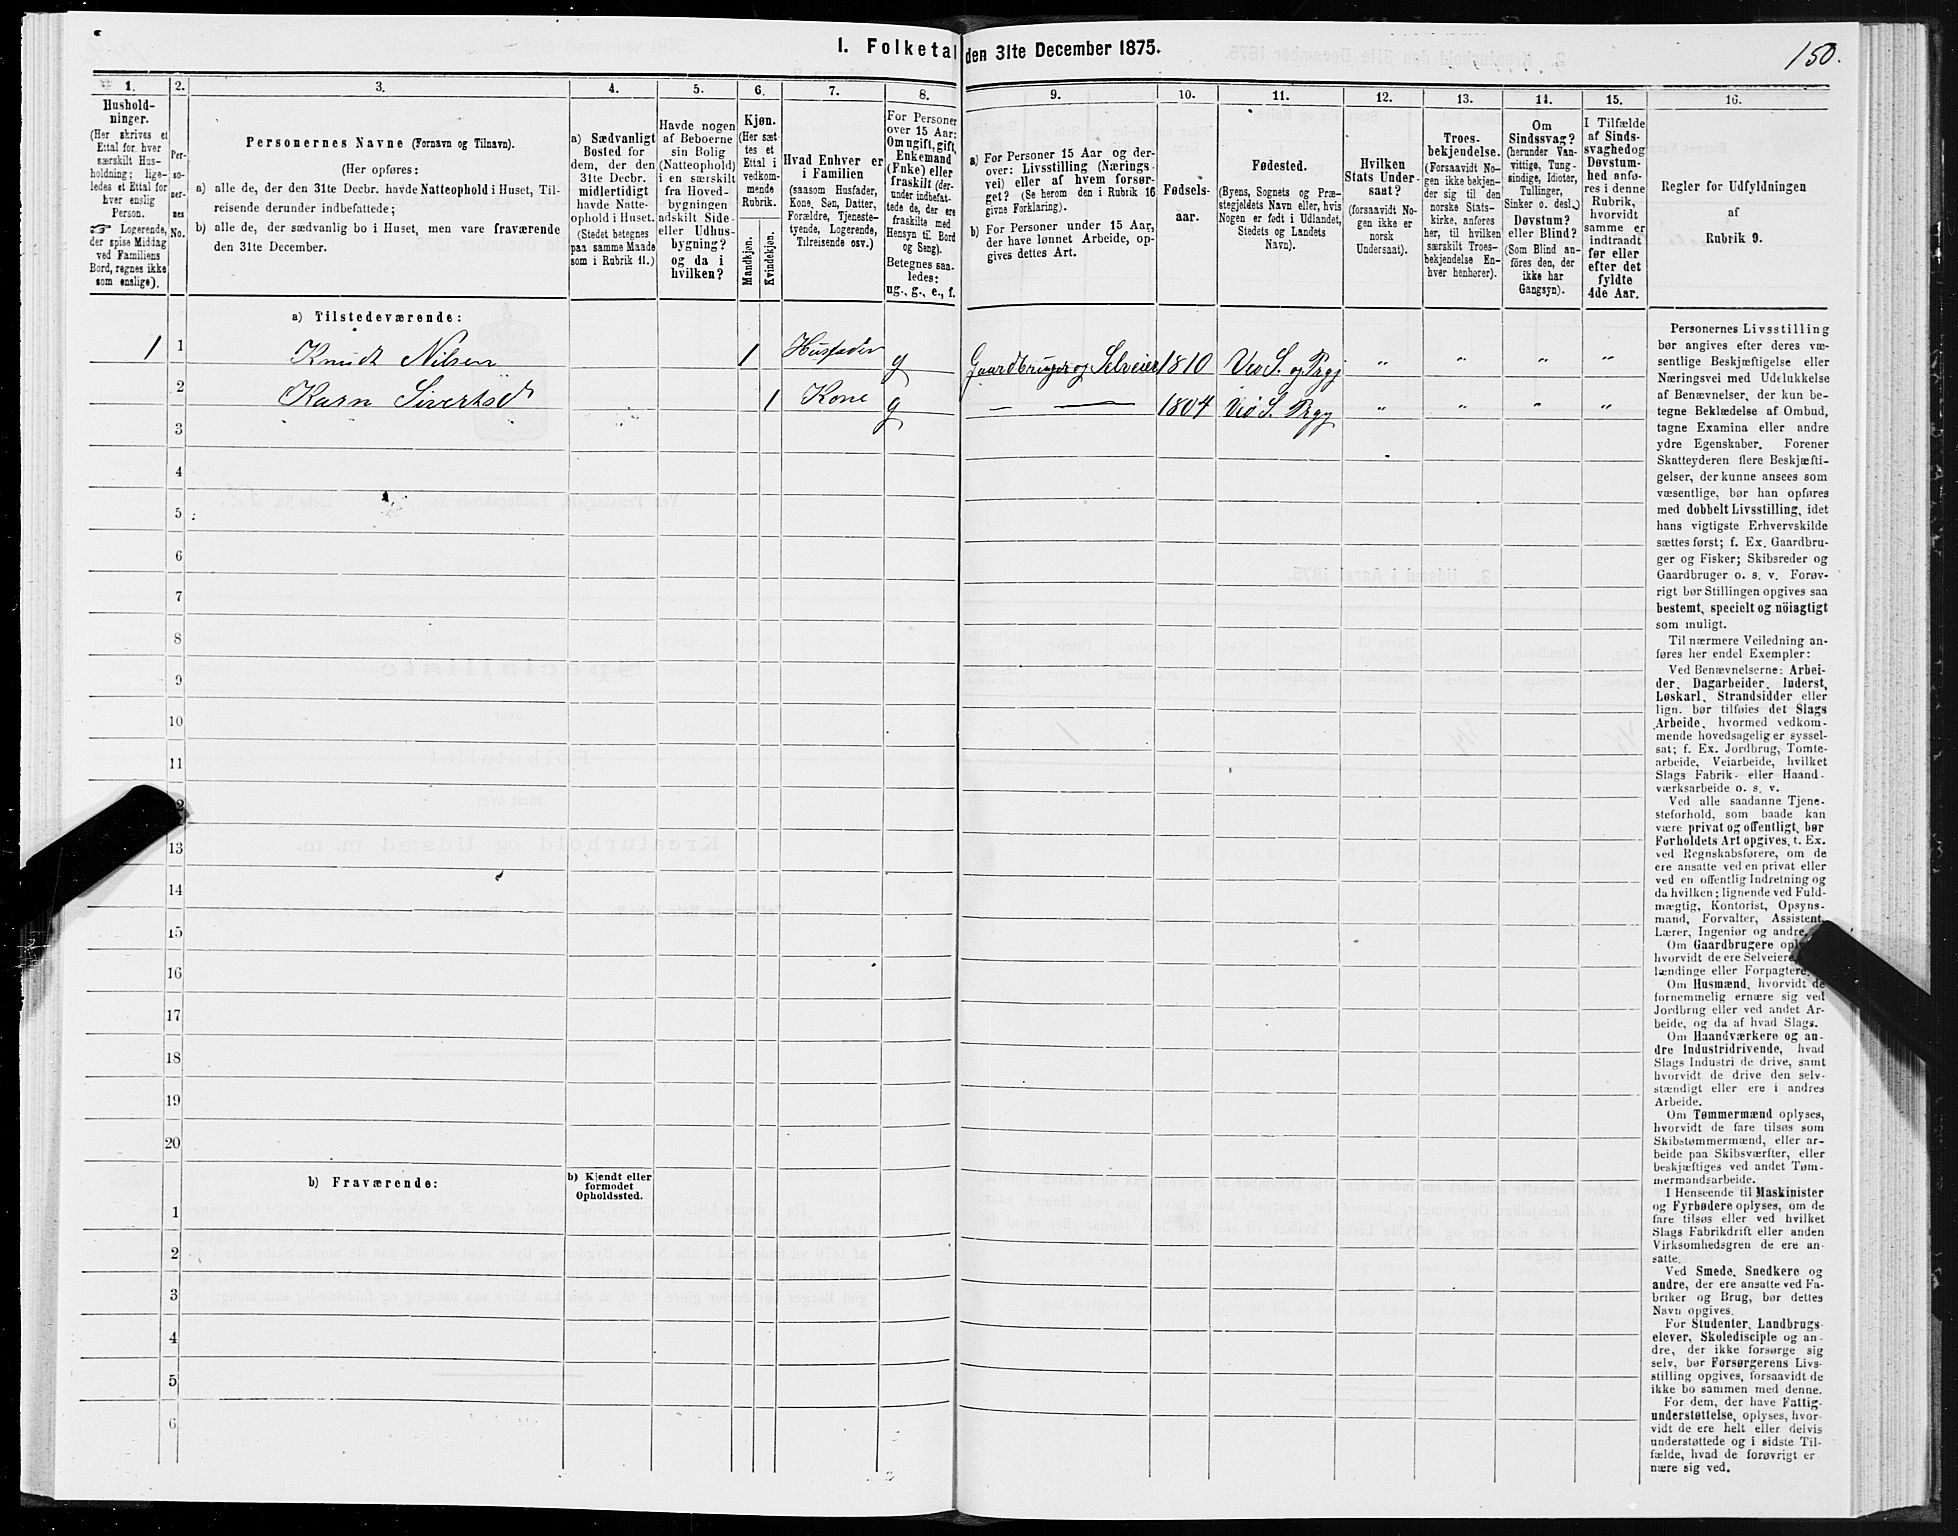 I. Folketal den 31te December 1875.
150.
1.
Hushold-
ninger.
(Her skrives et
Ettal for hver
særskilt Hus-
holdning; lige-
ledes et Ettal for
hver enslig
Person.
Logerende,
der spise Middag
ved Familiens
Bord, regnes ikke
som enslige).
2.
Per-
so-
ner-
nes
No.
3.
Personernes Navne (Fornavn og Tilnavn).
(Her opføres:
a) alle de, der den 31te Decbr. havde Natteophold i Huset, Til-
reisende derunder indbefattede;
b) alle de, der sædvanlig bo i Huset, men vare fraværende
den 31te December.
4.
a) Sædvanligt
Bosted for
dem, der den
31te Decbr.
midlertidigt
havde Natte-
ophold i Huset.
(Stedet betegnes
paa samme Maade
som i Rubrik 11.)
5.
Havde nogen
af Beboerne
sin Bolig
(Natteophold)
i en særskilt
fra Hoved-
bygningen
adskilt Side-
eller Udhus-
bygning?
og da i
hvilken?
6.
Kjøn.
(Her sæt-
tes et
Ettal i
vedkom-
mende
Rubrik.
Mandkjøn.
Kvindekjøn.
7.
Hvad Enhver er
i Familien
(saasom Husfader,
Kone, Søn, Datter,
Forældre, Tjeneste-
tyende, Logerende,
Tilreisende osv.)
8.
For Personer
over 15 Aar:
Om ugift, gift,
Enkemand
(Enke) eller
fraskilt (der-
under indbefat-
tede de, der ere
fraskilte med
Hensyn til Bord
og Seng).
Betegnes saa-
ledes:
ug., g., e., f.
9.
a) For Personer 15 Aar og der-
over: Livsstilling (Nærings-
vei) eller af hvem forsør-
get? (Se herom den i Rubrik 16
givne Forklaring).
b) For Personer under 15 Aar,
der have lønnet Arbeide, op-
gives dettes Art.
10.
Fødsels-
aar.
11.
Fødested.
(Byens, Sognets og Præ-
stegjeldets Navn eller, hvis
Nogen er født i Udlandet,
Stedets og Landets
Navn).
12.
Hvilken
Stats Under-
saat?
(forsaavidt No-
gen ikke er
norsk
Undersaat).
13.
Troes-
bekjendelse.
(Forsaavidt No-
gen ikke bekjen-
der sig til den
norske Stats-
kirke, anføres
her, til hvilken
særskilt Troes-
bekjendelse En-
hver henhører).
14.
Om
Sindssvag?
(herunder Van-
vittige, Tung-
sindige, Idioter,
Tullinger,
Sinker o. desl.)
Døvstum?
eller Blind?
(Som Blind an-
føres den, der
ikke har
Gangsyn).
15.
I Tilfælde
af Sinds-
svaghed og
Døvstum-
hed anfø-
res i denne
Rubrik,
hvorvidt
samme er
indtraadt
før eller
efter det
fyldte
4de Aar.
16.
Regler for Udfyldningen
af
Rubrik 9.
a) Tilstedeværende:
1 1 Knudt Nilsen 1 Husfader g Gaardbruger og Selveier 1810 Veø S. og Prgj " " " "
2 Karn Sivertsd 1 Kone g — — 1804 Veø S. Prgj " " " "
3
4
5
6
7
8
9
10
11
2
13
14
15
16
17
18
19
20
b) Fraværende:
b) Kjendt eller
formodet
Opholdssted.
1
2
3
4
5
6
Personernes Livsstilling
bør angives efter deres væ-
sentlige Beskjæftigelse eller
Næringsvei med Udelukkelse
af Benævnelser, der kun be-
tegne Beklædelse af Ombud,
tagne Examina eller andre
ydre Egenskaber. Forener
Skatteyderen flere Beskjæfti-
gelser, der kunne ansees som
væsentlige, bør han opføres
med dobbelt Livsstilling, idet
hans vigtigste Erhvervskilde
sættes først; f. Ex. Gaardbru-
ger og Fisker; Skibsreder og
Gaardbruger o. s. v. Forøv-
rigt bør Stillingen opgives saa
bestemt, specielt og nöiagtigt
som muligt.
Til nærmere Veiledning an-
føres her endel Exempler:
Ved Benævnelserne: Arbei-
der, Dagarbeider, Inderst,
Løskarl, Strandsidder eller
lign. bør tilføies det Slags
Arbeide, hvormed vedkom-
mende hovedsagelig er syssel-
sat; f. Ex. Jordbrug, Tomte-
arbeide, Veiarbeide, hvilket
Slags Fabrik- eller Haand-
værksarbeide o. s. v.
Ved alle saadanne Tjene-
steforhold, som baade kan
være privat og offentligt, bør
Forholdets Art opgives, t. Ex.
ved Regnskabsførere, om de
ere ansatte ved en privat eller
ved en offentlig Indretning og
da hvilken; lignende ved Fuld-
mægtig, Kontorist, Opsyns-
mand, Forvalter, Assistent,
Lærer, Ingeniør og andre.
Om Gaardbrugere oply
hvorvidt de ere Selveiere,
lændinge eller Forpagtere.
Om Husmænd, hvorvidt de
fornemmelig ernære sig ved
Jordbrug eller ved andet Ar-
beide, og da af hvad Slags.
Om Haandværkere og an-
dre Industridrivende, hvad
Slags Industri de drive, samt
hvorvidt de drive den selv-
stændigt eller ere i andres
Arbeide.
Om Tømmermænd oplyses,
hvorvidt de fare tilsøs som
Skibstømmermænd, eller ar-
beide paa Skibsværfter, eller
beskjæftiges ved andet Tøm-
mermandsarbeide.
I Henseende til Maskinister
og Fyrbødere oplyses, om de
fare tilsøs eller ved hvilket
Slags Fabrikdrift eller anden
Virksomhedsgren de ere an-
satte.
Ved Smede, Snedkere og
andre, der ere ansatte ved Fa-
briker og Brug, bør dettes
Navn opgives.
For Studenter, Landbrugs-
elever, Skoledisciple og an-
dre, der ikke forsørge sig
selv, bør Forsørgerens Livs-
stilling opgives, forsaavidt de
ikke bo sammen med denne.
For dem, der have Fattig-
understøttelse, oplyses, hvor-
vidt de ere helt eller delvis
understøttede og i sidste Til-
fælde, hvad de forøvrigt er-
nære sig ved.